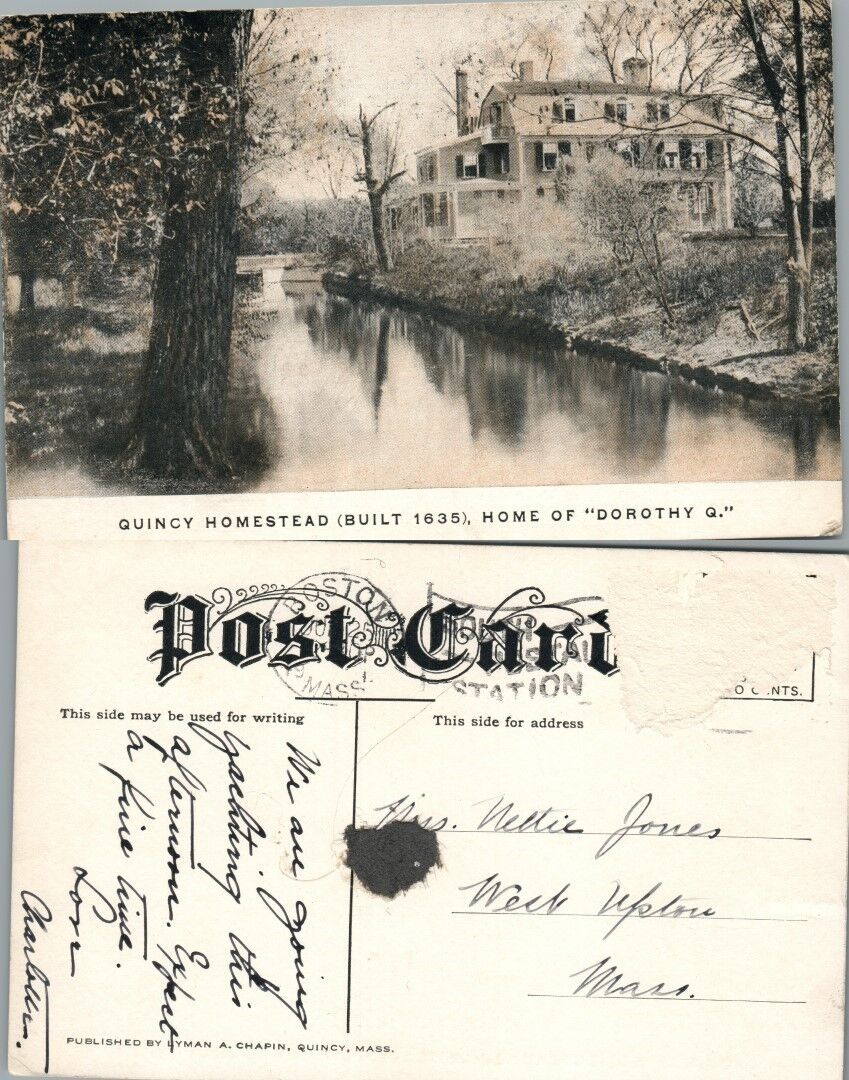 QUINCY HOMESTEAD (BUILT 1635), HOME OF "DOROTHY Q."
Post Car
BOSTON
MASS.
STATION
NTS.
This side may be used for writing
This side for address
We are going
yachting this
afternoon. Expect
a fine time.
Love
Charlotte.
Miss. Nettie Jones
West Upton
Mass.
PUBLISHED BY LYMAN A. CHAPIN, QUINCY, MASS.